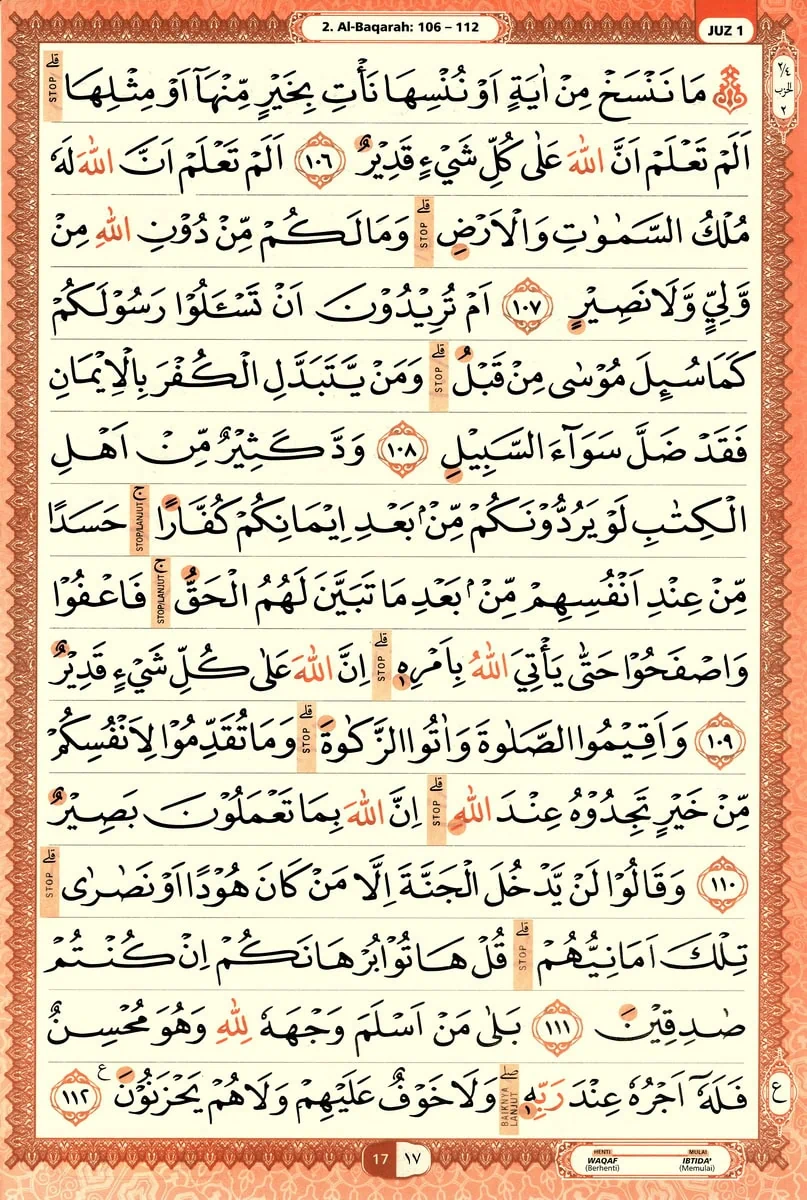 2. Al-Baqarah: 106 – 112
JUZ 1
٢/٤
الحزب
٢
مَا نَنْسَخْ مِنْ اٰيَةٍ اَوْ نُنْسِهَا نَأْتِ بِخَيْرٍ مِّنْهَآ اَوْ مِثْلِهَا ۗ STOP
اَلَمْ تَعْلَمْ اَنَّ اللّٰهَ عَلٰى كُلِّ شَيْءٍ قَدِيْرٌ ١٠٦ اَلَمْ تَعْلَمْ اَنَّ اللّٰهَ لَهٗ
مُلْكُ السَّمٰوٰتِ وَالْاَرْضِ ۗ STOP وَمَا لَكُمْ مِّنْ دُوْنِ اللّٰهِ مِنْ
وَّلِيٍّ وَّلَا نَصِيْرٍ ١٠٧ اَمْ تُرِيْدُوْنَ اَنْ تَسْـَٔلُوْا رَسُوْلَكُمْ
كَمَا سُىِٕلَ مُوْسٰى مِنْ قَبْلُ ۗ STOP وَمَنْ يَّتَبَدَّلِ الْكُفْرَ بِالْاِيْمَانِ
فَقَدْ ضَلَّ سَوَاۤءَ السَّبِيْلِ ١٠٨ وَدَّ كَثِيْرٌ مِّنْ اَهْلِ
الْكِتٰبِ لَوْ يَرُدُّوْنَكُمْ مِّنْۢ بَعْدِ اِيْمَانِكُمْ كُفَّارًا ۚ STOP/LANJUT حَسَدًا
مِّنْ عِنْدِ اَنْفُسِهِمْ مِّنْۢ بَعْدِ مَا تَبَيَّنَ لَهُمُ الْحَقُّ ۚ STOP/LANJUT فَاعْفُوْا
وَاصْفَحُوْا حَتّٰى يَأْتِيَ اللّٰهُ بِاَمْرِهٖ ۗ STOP اِنَّ اللّٰهَ عَلٰى كُلِّ شَيْءٍ قَدِيْرٌ
١٠٩ وَاَقِيْمُوا الصَّلٰوةَ وَاٰتُوا الزَّكٰوةَ ۗ STOP وَمَا تُقَدِّمُوْا لِاَنْفُسِكُمْ
مِّنْ خَيْرٍ تَجِدُوْهُ عِنْدَ اللّٰهِ ۗ STOP اِنَّ اللّٰهَ بِمَا تَعْمَلُوْنَ بَصِيْرٌ
١١٠ وَقَالُوْا لَنْ يَّدْخُلَ الْجَنَّةَ اِلَّا مَنْ كَانَ هُوْدًا اَوْ نَصٰرٰى ۗ STOP
تِلْكَ اَمَانِيُّهُمْ ۗ STOP قُلْ هَاتُوْا بُرْهَانَكُمْ اِنْ كُنْتُمْ
صٰدِقِيْنَ ١١١ بَلٰى مَنْ اَسْلَمَ وَجْهَهٗ لِلّٰهِ وَهُوَ مُحْسِنٌ
فَلَهٗٓ اَجْرُهٗ عِنْدَ رَبِّهٖ ۖ BAIKNYA LANJUT وَلَا خَوْفٌ عَلَيْهِمْ وَلَا هُمْ يَحْزَنُوْنَ ع ١١٢
ع
17 ١٧
HENTI WAQAF (Berhenti)
MULAI IBTIDA' (Memulai)